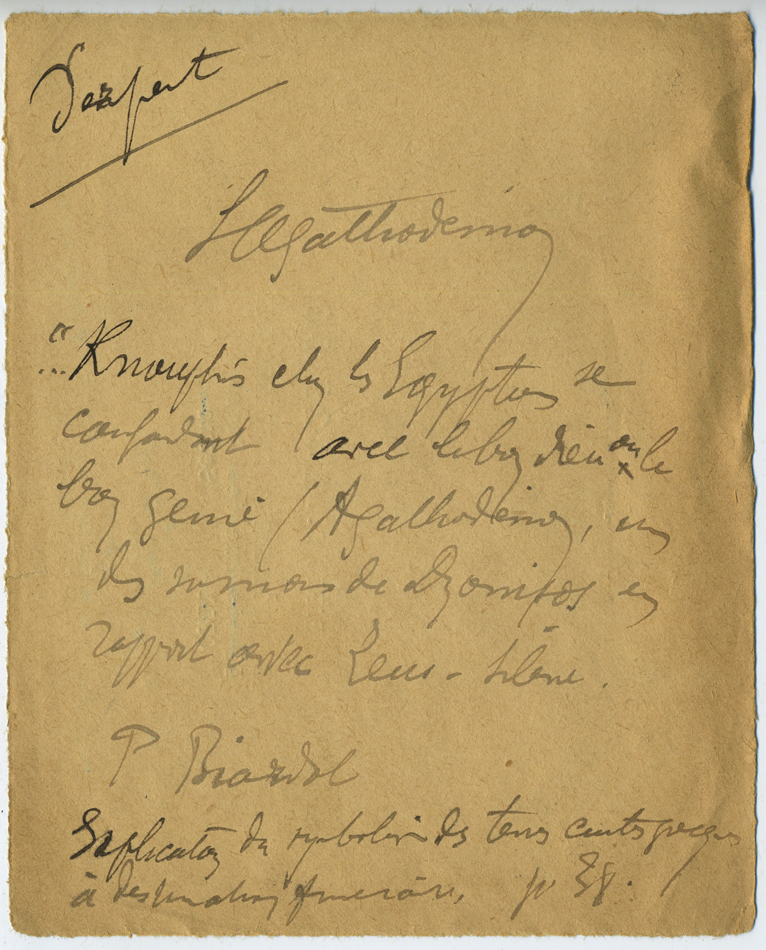 Serpent
L'Agathodemon
"... Knouphis chez les Egyptiens se
confondant avec le bon dieu ou le
bon genie (Agathodemon, un
des surnoms de Dyonisos en
rapport avec Zeus - Silène.
P Biardot
Explication du symbolisme des terres cuites grecques
à destination funeraire. p